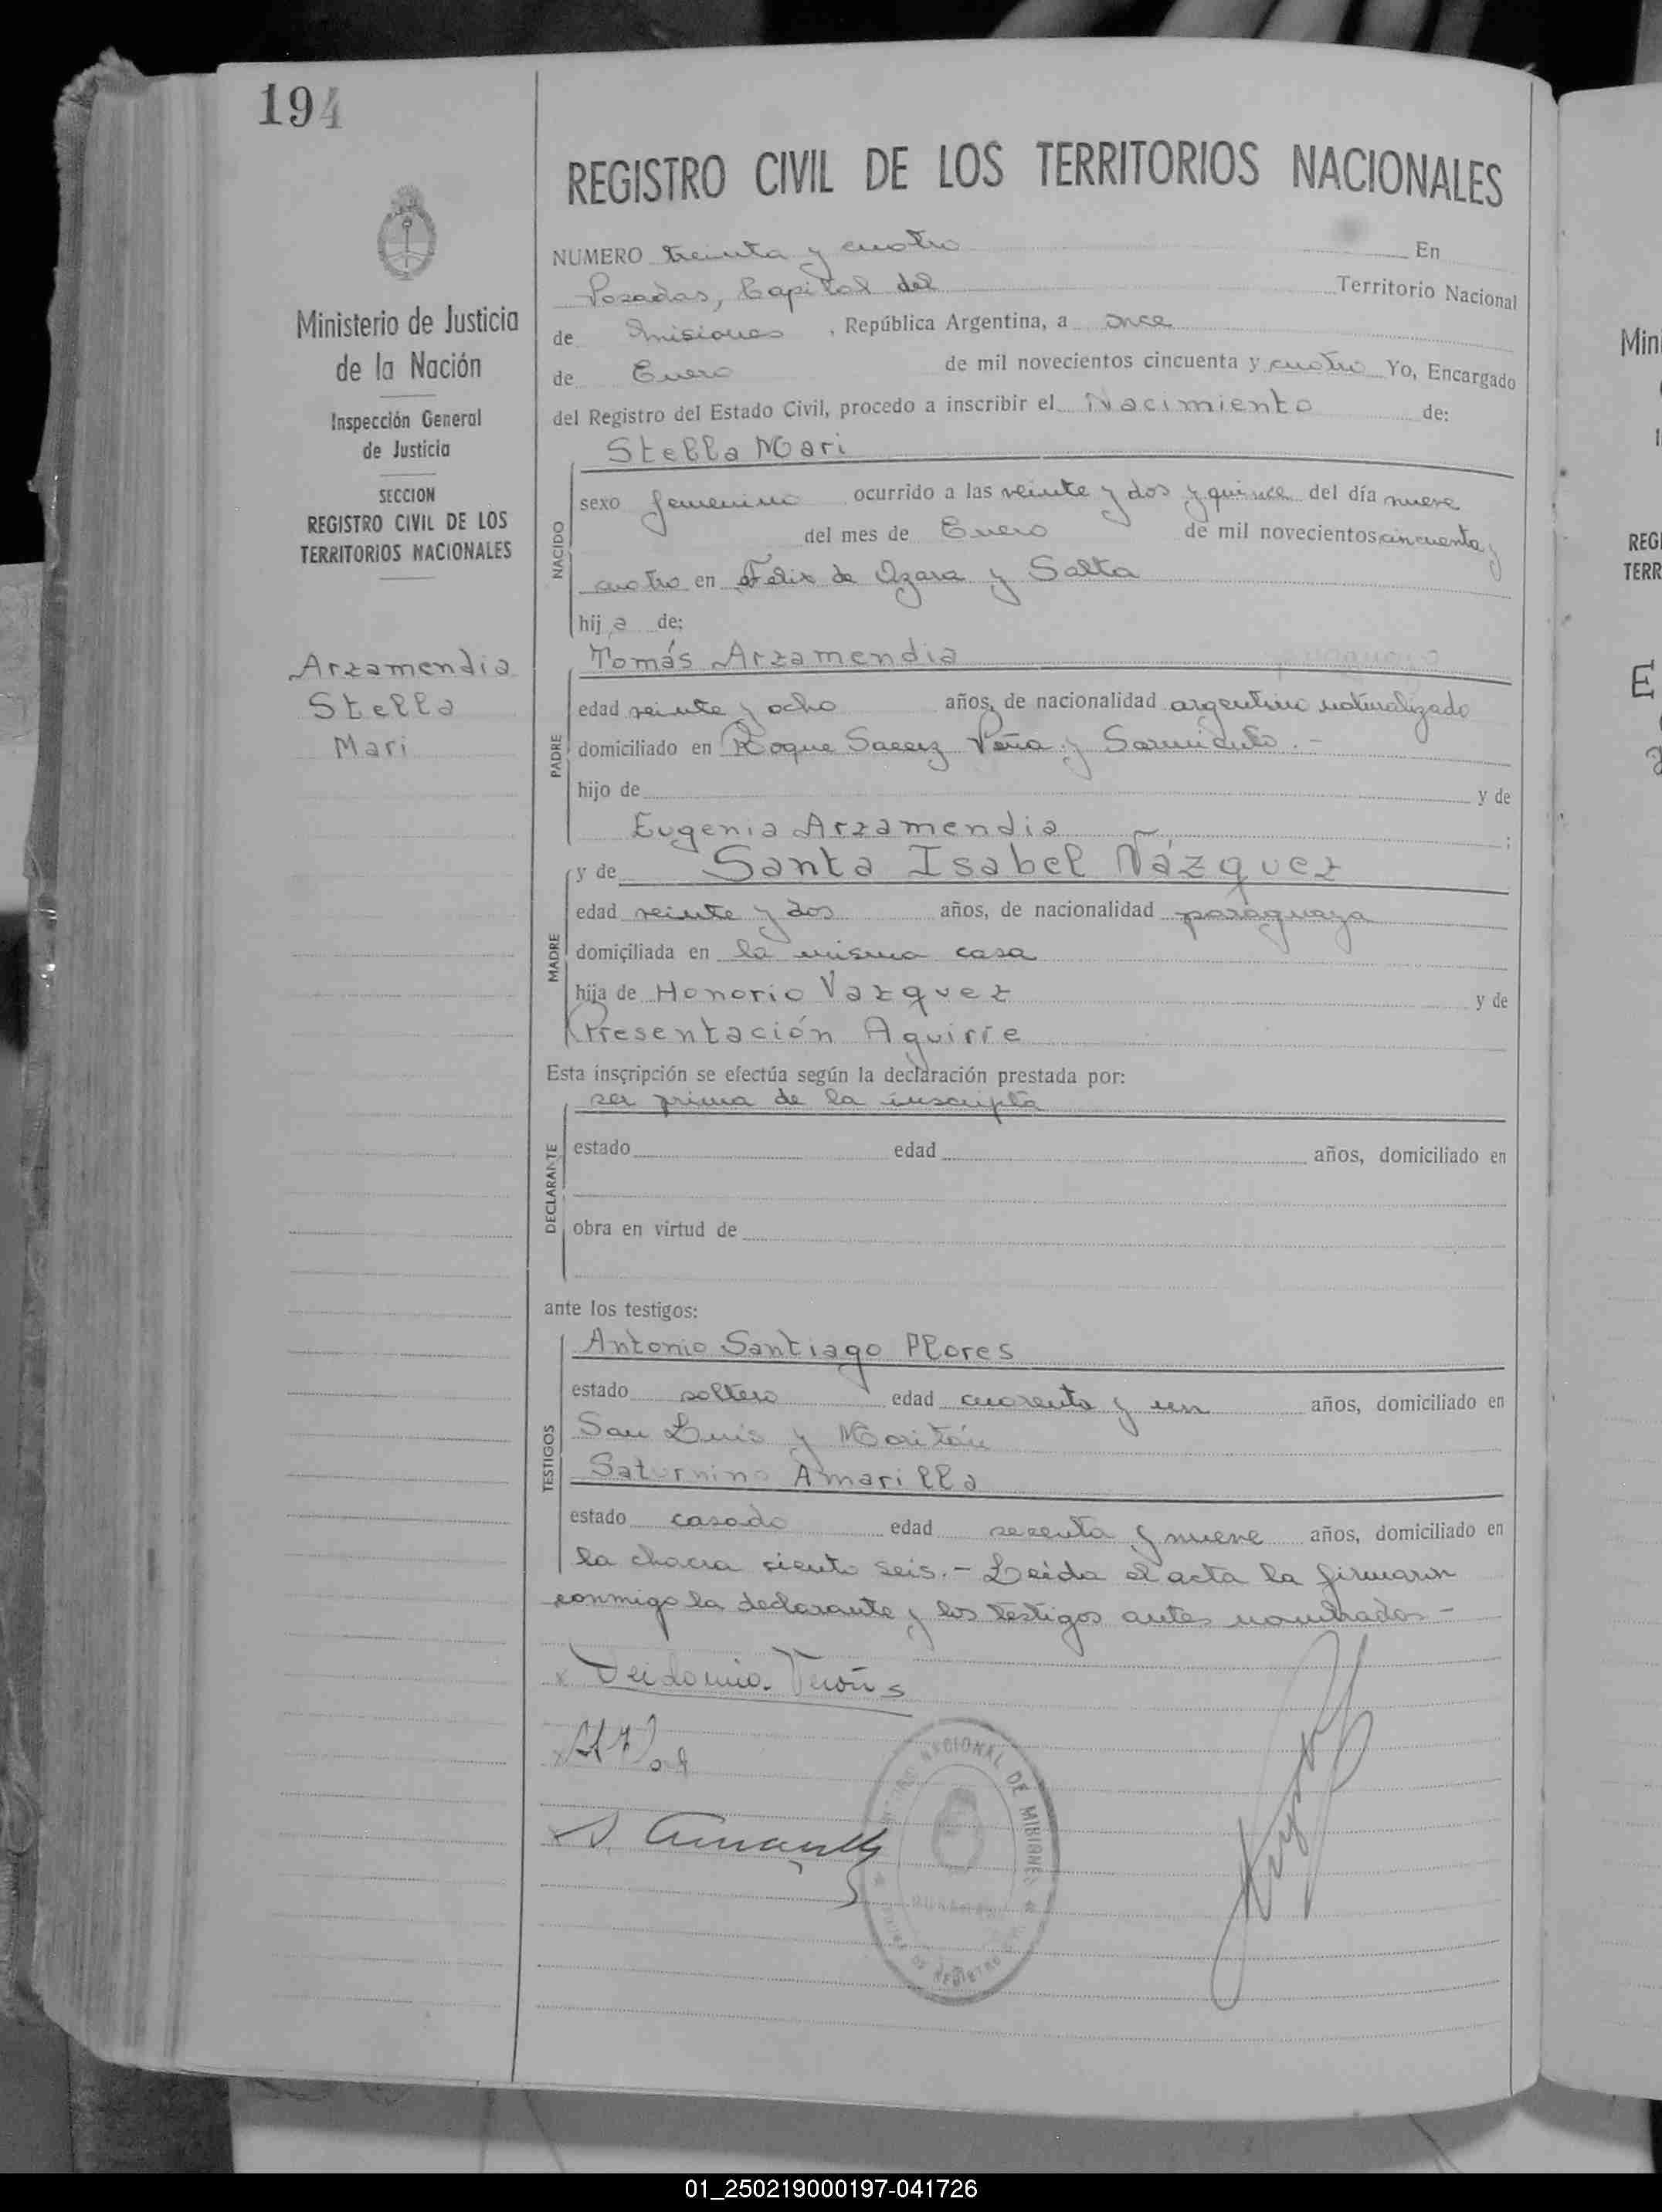 194
REGISTRO CIVIL DE LOS TERRITORIOS NACIONALES
NUMERO treinta y cuatro En
Posadas, Capital del Territorio Nacional
de Misiones , República Argentina, a once
de Enero de mil novecientos cincuenta y cuatro Yo, Encargado
del Registro del Estado Civil, procedo a inscribir el Nacimiento de:
Stella Mari
NACIDO
sexo femenino ocurrido a las veinte y dos y quince del día nueve
del mes de Enero de mil novecientos cincuenta y
cuatro en Felix de Azara y Salta
hij a de:
Tomás Arzamendia
PADRE
edad veinte y ocho años, de nacionalidad argentino naturalizado
domiciliado en Roque Saenz Peña y Sarmiento.-
hijo de y de
Eugenia Arzamendia ;
y de Santa Isabel Vázquez
MADRE
edad veinte y dos años, de nacionalidad paraguaya
domiciliada en la misma casa
hija de Honorio Vazquez y de
Presentación Aguirre
Esta inscripción se efectúa según la declaración prestada por:
ser prima de la inscripta
DECLARANTE
estado edad años, domiciliado en
obra en virtud de
ante los testigos:
Antonio Santiago Flores
TESTIGOS
estado soltero edad cuarenta y un años, domiciliado en
San Luis y Maitán
Saturnino Amarilla
estado casado edad sesenta y nueve años, domiciliado en
la chacra ciento seis.- Leída el acta la firmaron
conmigo la declarante y los testigos antes nombrados-
Ministerio de Justicia
de la Nación
Inspección General
de Justicia
SECCION
REGISTRO CIVIL DE LOS
TERRITORIOS NACIONALES
Arzamendia
Stella
Mari
NACIONAL DE MISIONES
Min
REGI
TERR
E
01_250219000197-041726